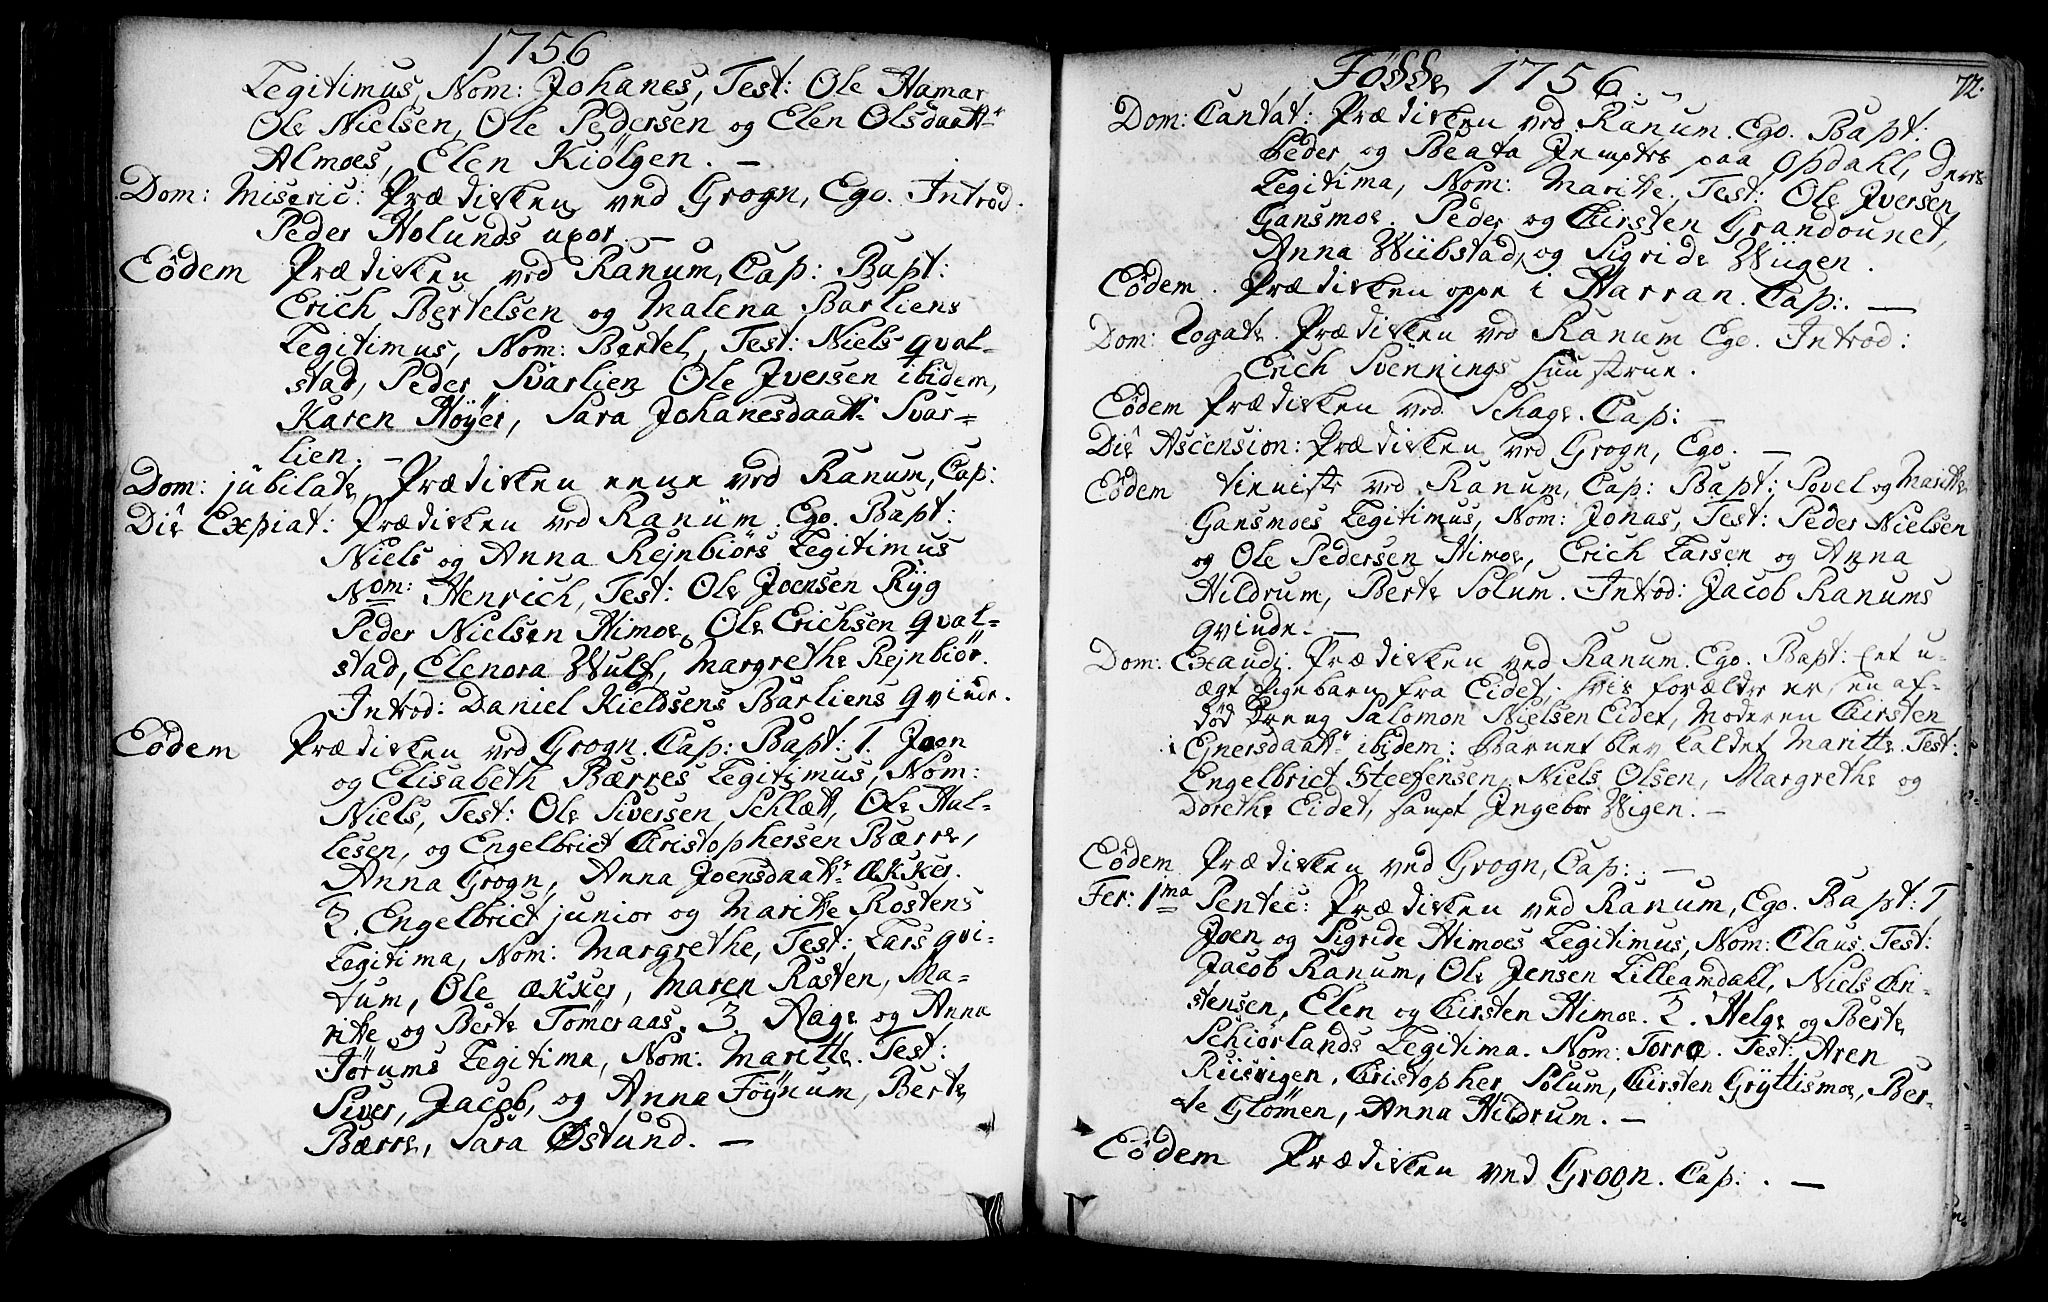 1756
Legitimus, Nom: Johanes, Test: Ole Hamar
Ole Nielsen, Ole Pedersen og Elen Olsdaatt:
Almoes, Elen Kiølgen. —
Dom: Miseric: Prædicken ved Grogn, Ego. Introd.
Peder Holunds uxor —
Eòdem Prædicken ved Ranum, Cap: Bapt:
Erich Bertelsen og Malena Barliens
Legitimus, Nom: Bertel, Test: Niels qval-
stad, Peder Svarlien Ole Jversen ibidem,
Karen Høÿer, Sara Johanesdaatt: Svar-
lien. —
Dom: jubilate, Prædicken ved Ranum, Cap:
Die Expiat: Prædicken ved Ranum. Ego. Bapt:
Niels og Anna Rejnbiørs Legitimus
Nom: Henrich, Test: Ole Joensen Ryg
Peder Nielsen Himoe, Ole Erichsen qval-
stad, Elenora Wulf, Margrethe Rejnbiør.
Introd: Daniel Kieldsens Barliens qvinde.
Eòdem Prædicken ved Grogn. Cap: Bapt: 1. Joen
og Elisabeth Bærres Legitimus, Nom:
Niels, Test: Ole Siversen Schlett, Ole Hal-
lesen, og Engelbrict Christophersen Bærre,
Anna Grogn, Anna Joensdaatt: Ækker.
2. Engelbrict junior og Maritte Rostens
Legitima, Nom: Margrethe, Test: Lars qvi-
tum, Ole Ækker, Maren Rosten, Ma-
ritte og Berte Tømeraas. 3. Aage og Anna
Jørums Legitima, Nom: Maritte. Test:
Siver, Jacob, og Anna Føÿnum, Berte
Bærre, Sara Østund. —
Fødde 1756.
72.
Dom: Cantat: Prædicken ved Ranum. Ego. Bapt:
Peder og Beata Jempter paa Opdahl, Deres
Legitima, Nom: Maritte, Test: Ole Jversen
Gansmoe. Peder og Kirsten Grandounet,
Anna Wiibstad, og Sigride Wiigen.
Eòdem. Prædicken oppe i Harran. Cap: —
Dom: Rogate. Prædicken ved Ranum Ego. Introd:
Erich Svennings huustrue.
Eòdem Prædicken ved Schage. Cap: —
Die Ascension: Prædicken ved Grogn, Ego. —
Eòdem tieniste ved Ranum, Cap: Bapt: Povel og Maritte
Gansmoes Legitimus, Nom: Jonas, Test: Peder Nielsen
og Ole Pedersen Himoe, Erich Larsen og Anna
Hildrum, Berte Solum. Introd: Jacob Ranums
qvinde. —
Dom: Exaudi. Prædicken ved Ranum. Ego. Bapt: eet u-
ægt Pigebarn fra Eidet, hvis forældre er, en af-
død Dreng Salomon Nielsen Eidet, Moderen Kirsten
Ejnersdaatt: ibidem: Barnet blev kaldet Maritte. Test:
Engelbrict Steefensen, Niels Olsen, Margrethe og
Dorethe Eidet, sampt Jngebor Wigen. —
Eòdem Prædicken ved Grogn, Cap: —
Fer: 1ma Pentec: Prædicken ved Ranum, Ego. Bapt: 1,
Joen og Sigride Himoes Legitimus, Nom: Claus. Test:
Jacob Ranum, Ole Jensen Lilleamdahl, Niels Chri-
stensen, Elen og Kirsten Himoe. 2. Helge og Berte
Schiørlands Legitima. Nom: Torra. Test: Aren
Ruisvigen. Christopher Solum, Kirsten Gryttismoe, Ber-
te Glømen, Anna Hildrum. —
Eòdem Prædicken ved Grogn. Cap: . —